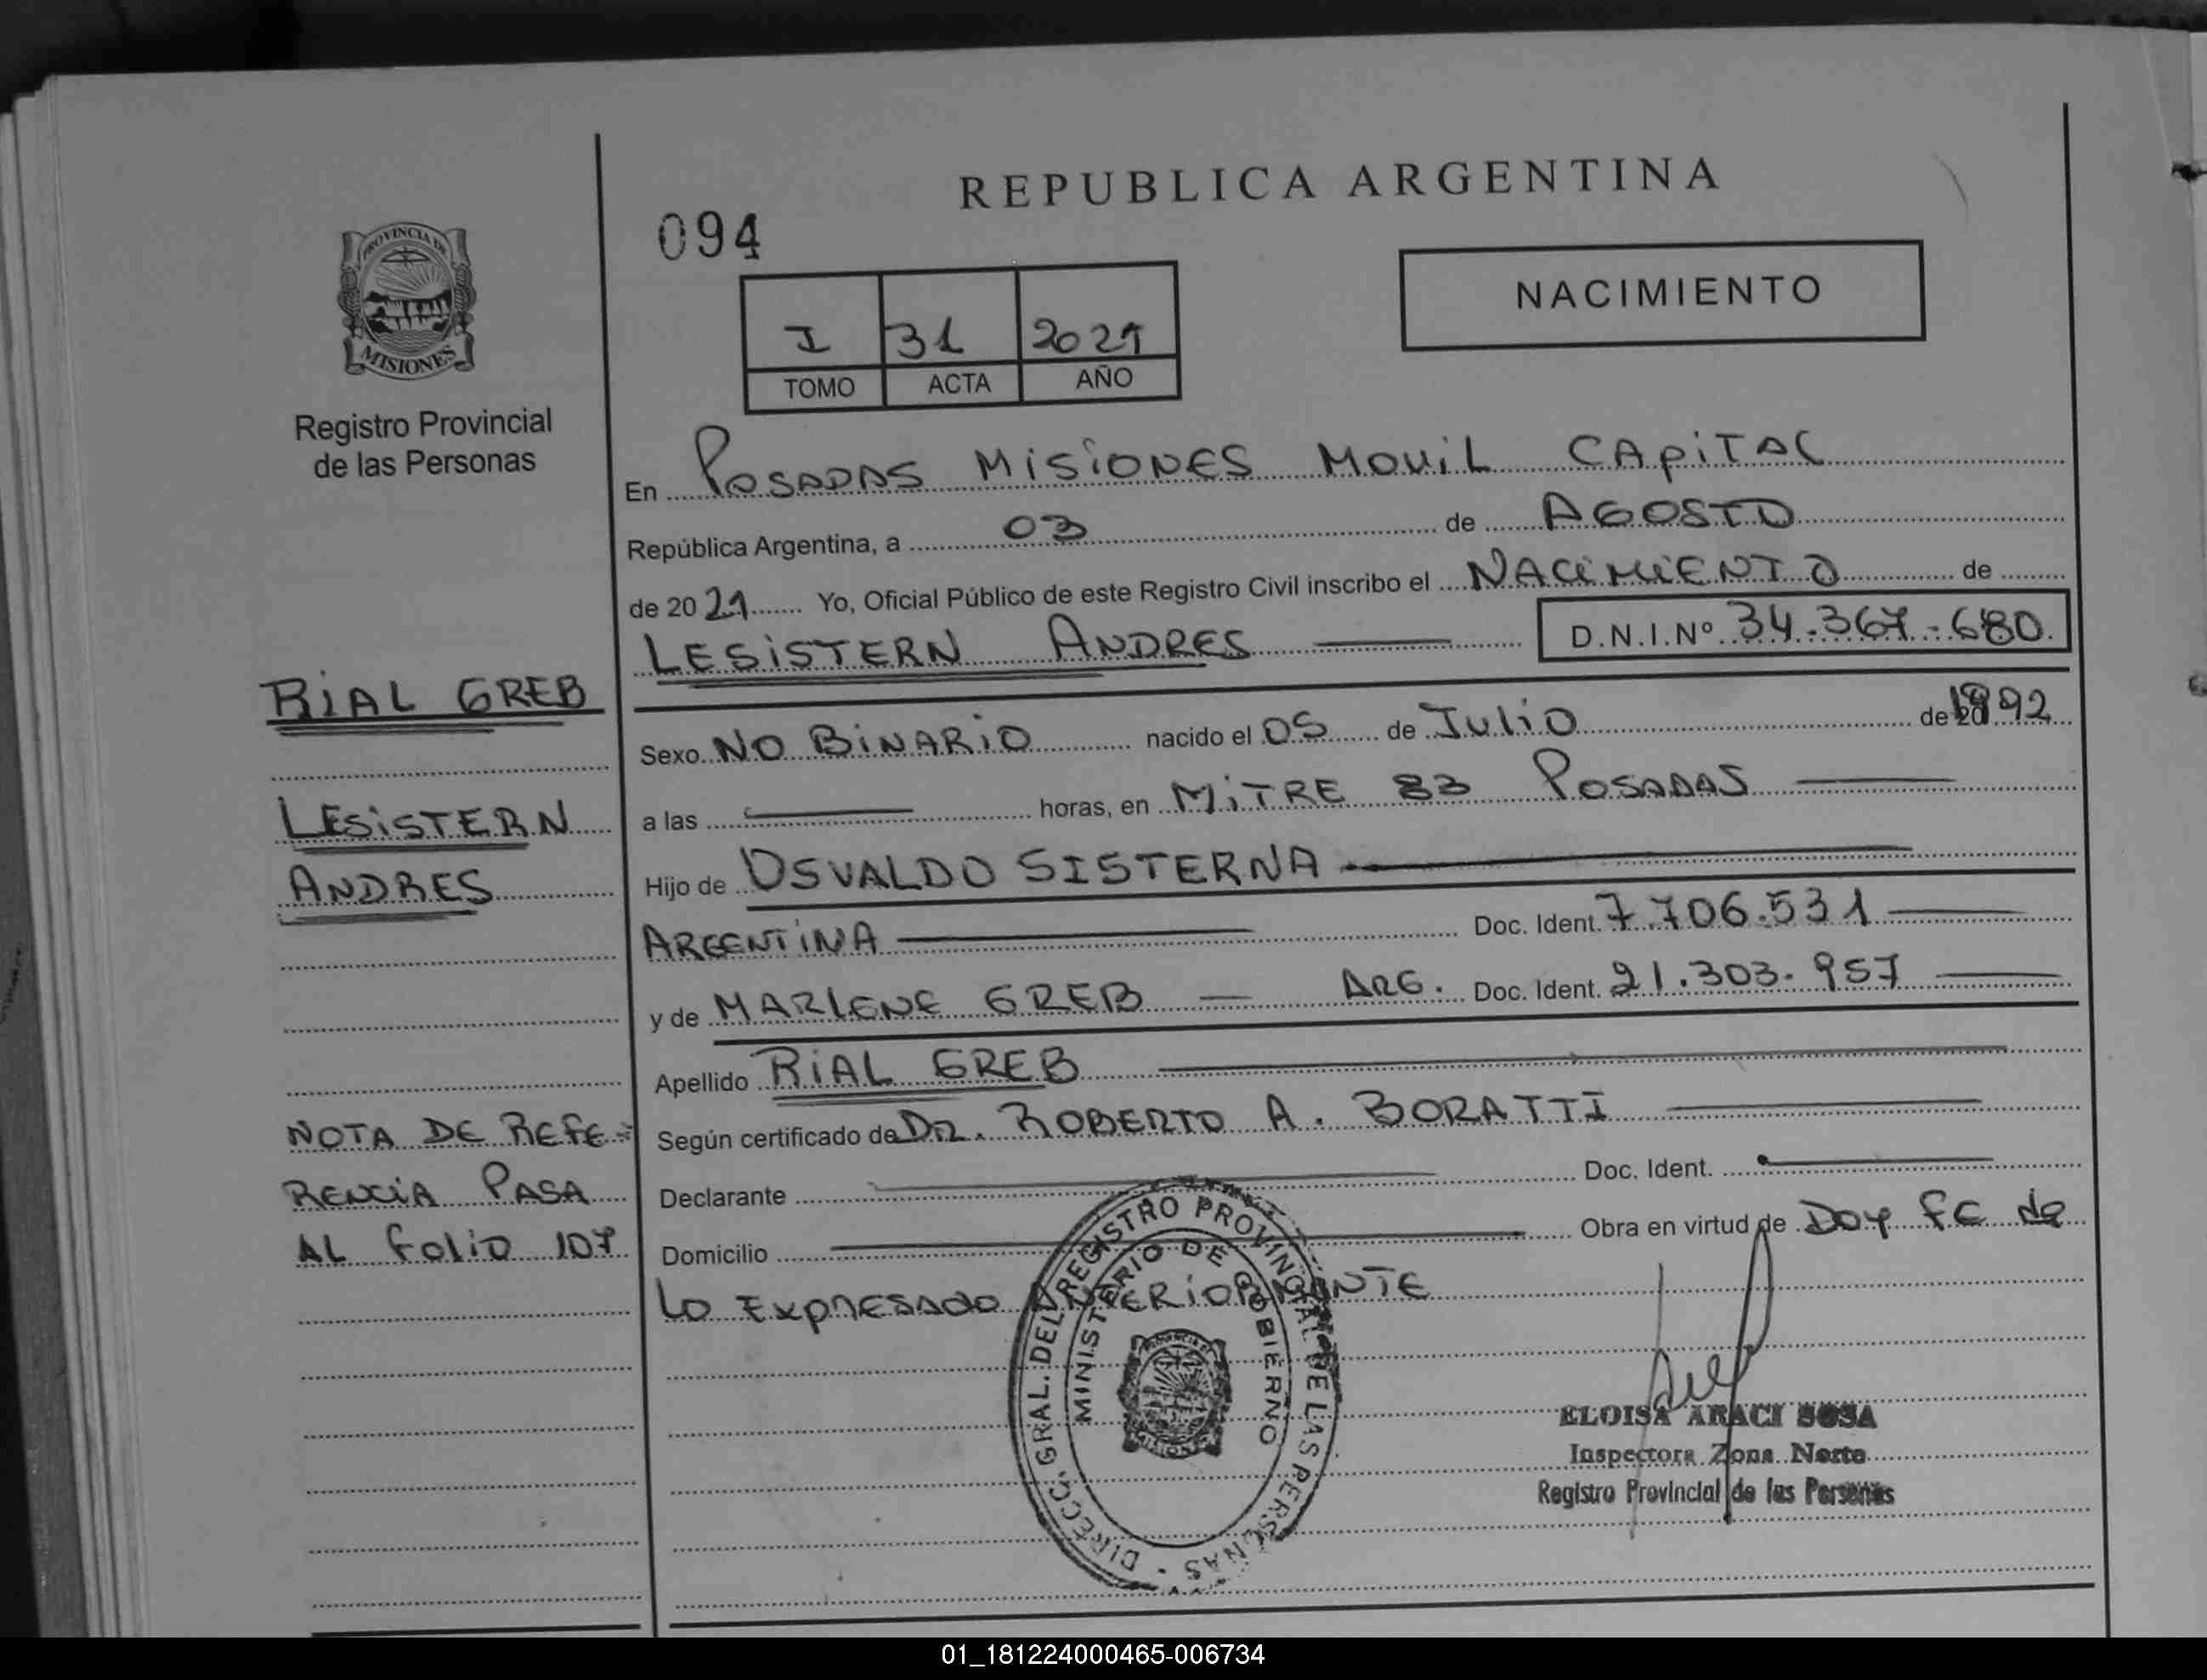 REPUBLICA ARGENTINA
094
NACIMIENTO
I 31 2021
TOMO ACTA AÑO
PROVINCIA DE
MISIONES
Registro Provincial
de las Personas
En POSADAS MISIONES MOVIL CAPITAL
República Argentina, a 03 de AGOSTO
de 2021 Yo, Oficial Público de este Registro Civil inscribo el NACIMIENTO de
LESISTERN ANDRES D.N.I.Nº 34.367.680
RIAL GREB
Sexo NO BINARIO nacido el 05 de JULIO de 1992
LESISTERN
a las horas, en MITRE 83 POSADAS
ANDRES
Hijo de OSVALDO SISTERNA
ARGENTINA Doc. Ident. 7.706.531
y de MARLENE GREB ARG. Doc. Ident. 21.303.957
Apellido RIAL GREB
NOTA DE REFE=
Según certificado de DR. ROBERTO A. BORATTI
RENCIA PASA
Declarante Doc. Ident.
AL FOLIO 107
Domicilio Obra en virtud de DOY FE de
LO EXPRESADO ANTERIORMANTE
DIRECC. GRAL. DEL REGISTRO PROVINCIAL DE LAS PERSONAS
MINISTERIO DE GOBIERNO
ELOISA ARACI SOSA
Inspectora Zona Norte
Registro Provincial de las Personas
01_181224000465-006734